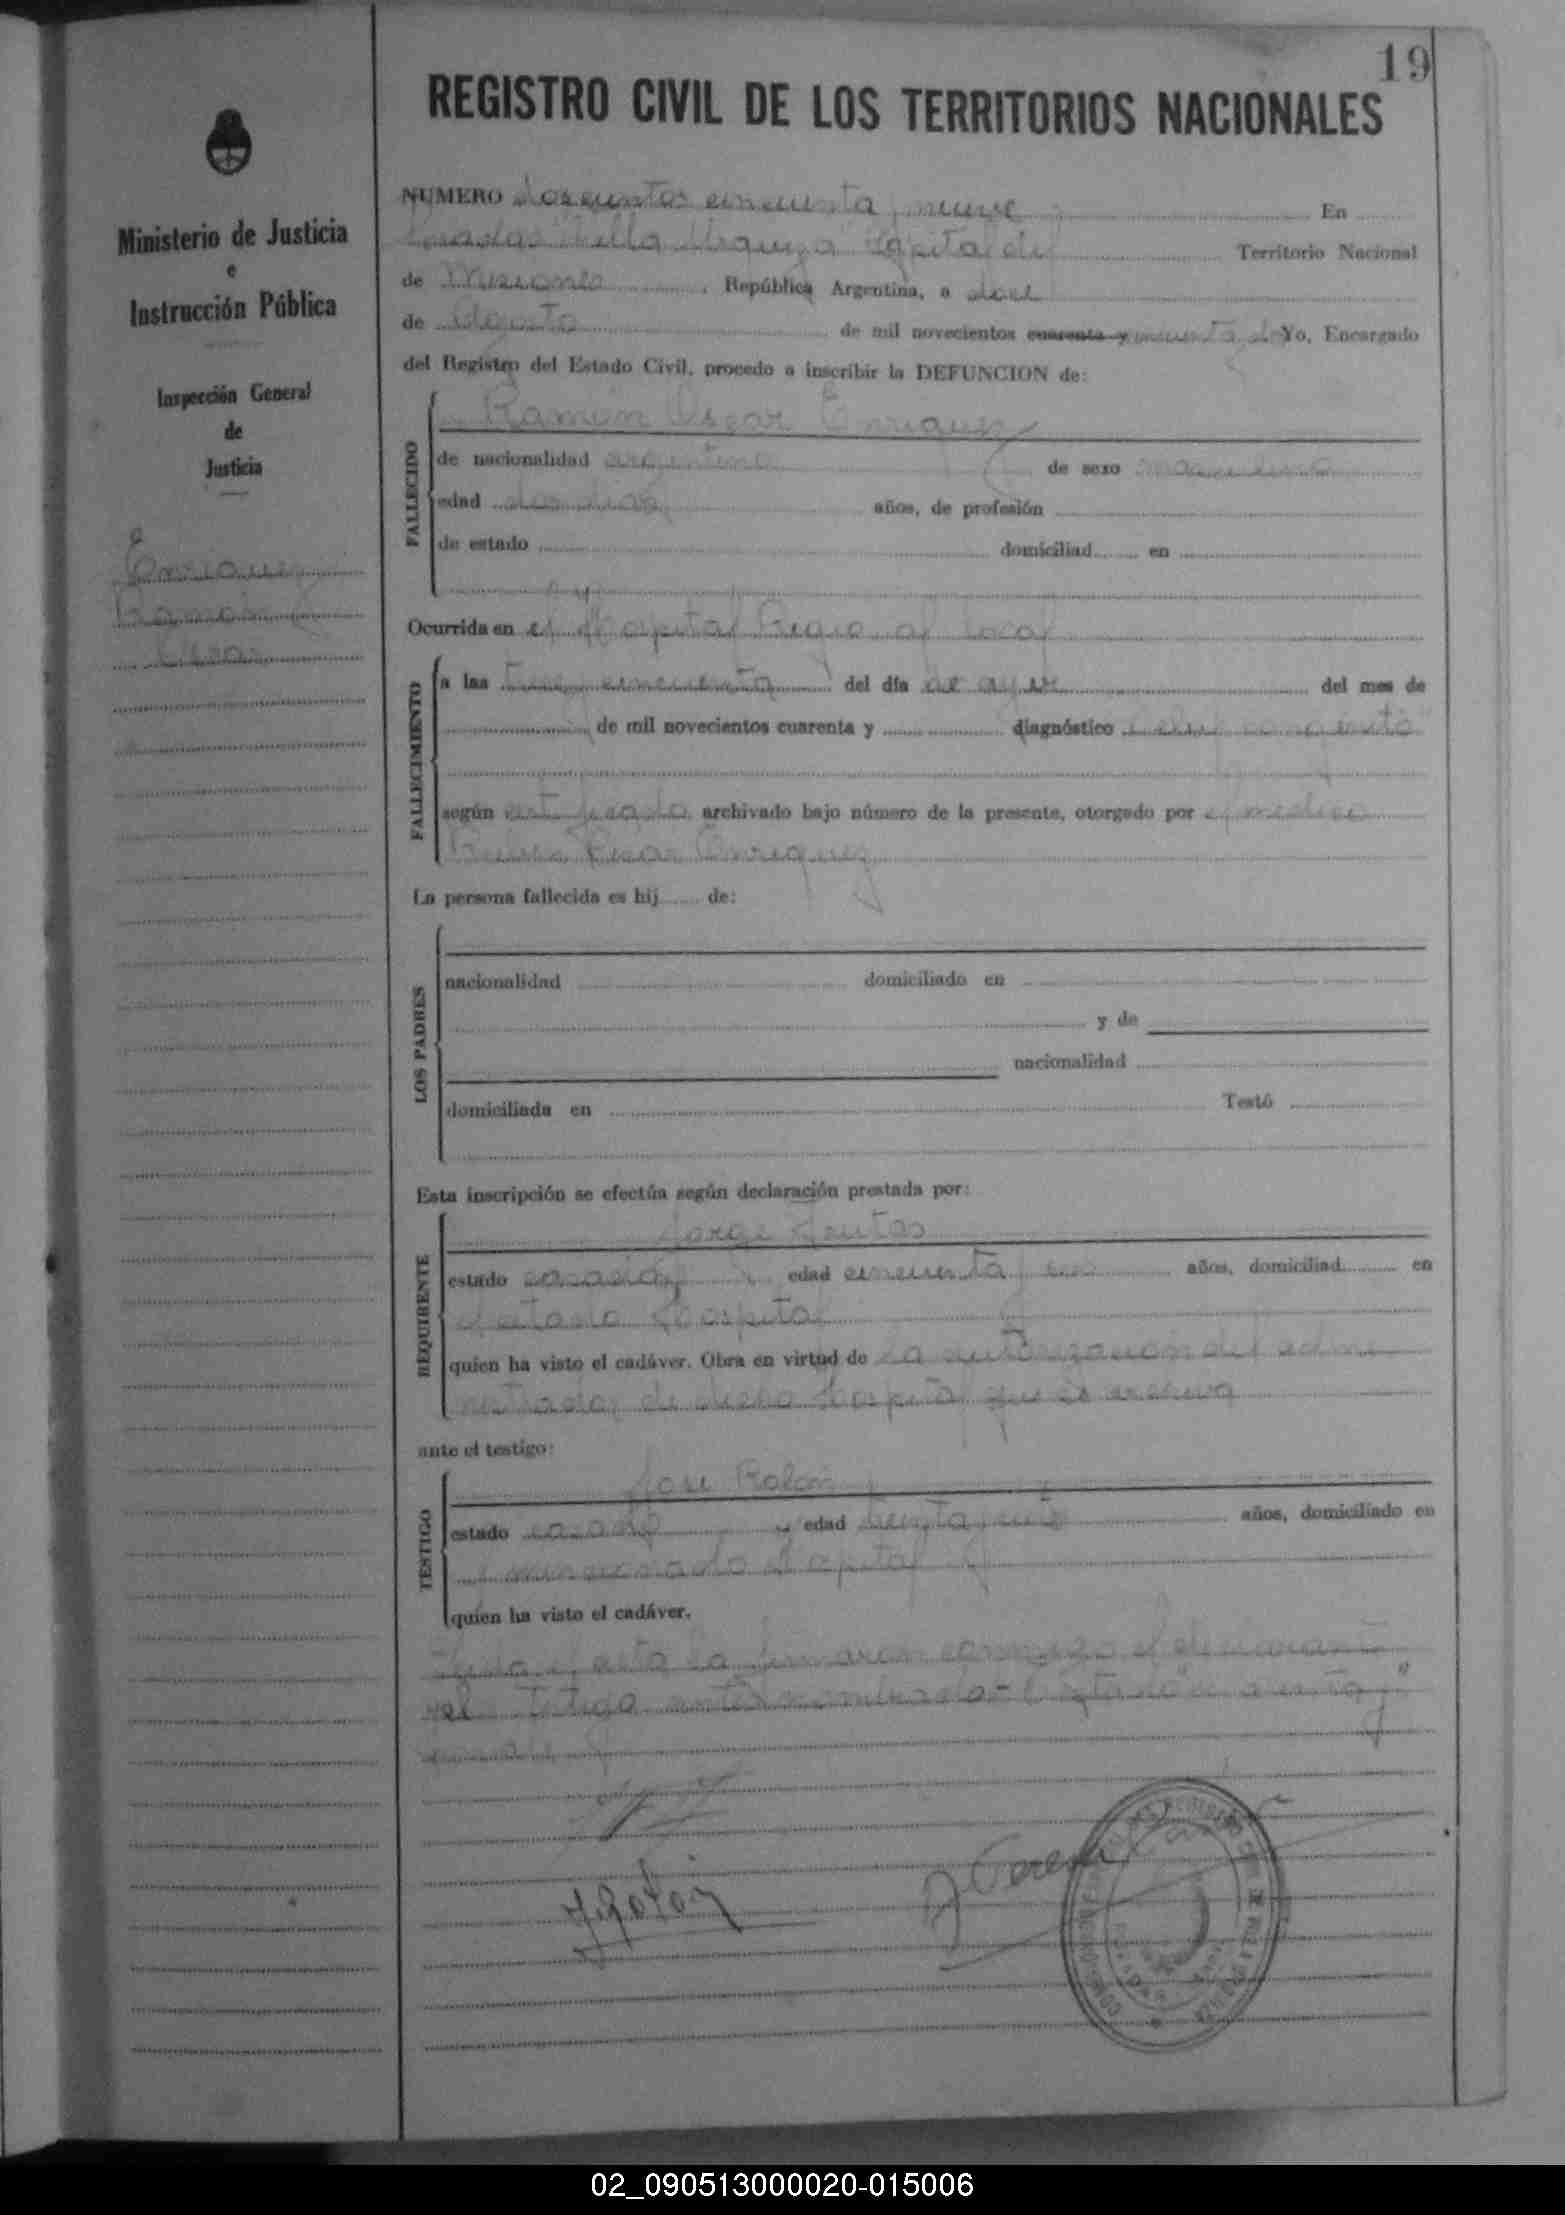 19
REGISTRO CIVIL DE LOS TERRITORIOS NACIONALES
Ministerio de Justicia
e
Instrucción Pública
Inspección General
de
Justicia
Enriquez
Ramón
Cesar
NUMERO doscientos cincuenta y nueve En
Posadas Villa Urquiza Capital del Territorio Nacional
de Misiones, República Argentina, a doce
de Agosto de mil novecientos cuarenta y cincuenta y dos Yo, Encargado
del Registro del Estado Civil, procedo a inscribir la DEFUNCION de:
Ramón Cesar Enriquez
FALLECIDO
de nacionalidad argentino de sexo masculino
edad dos dias años, de profesión
de estado domiciliad en
Ocurrida en el Hospital Regional local
FALLECIMIENTO
a las cincuenta del día de ayer del mes de
de mil novecientos cuarenta y diagnóstico
según certificado archivado bajo número de la presente, otorgado por el medico
Enriquez
La persona fallecida es hij de:
LOS PADRES
nacionalidad domiciliado en
y de
nacionalidad
domiciliada en Testó
Esta inscripción se efectúa según declaración prestada por:
Jorge Frutos
REQUIRENTE
estado casado edad cincuenta años, domiciliad en
el citado Hospital
quien ha visto el cadáver. Obra en virtud de la autorización del admi
nistrador de dicho Hospital que se archiva
ante el testigo:
José Rolón
TESTIGO
estado casado y edad treinta y años, domiciliado en
el mencionado Hospital
quien ha visto el cadáver.
Leida el acta la firmaron conmigo el declarante
y el testigo antes nombrado
J. Rolón
02_090513000020-015006